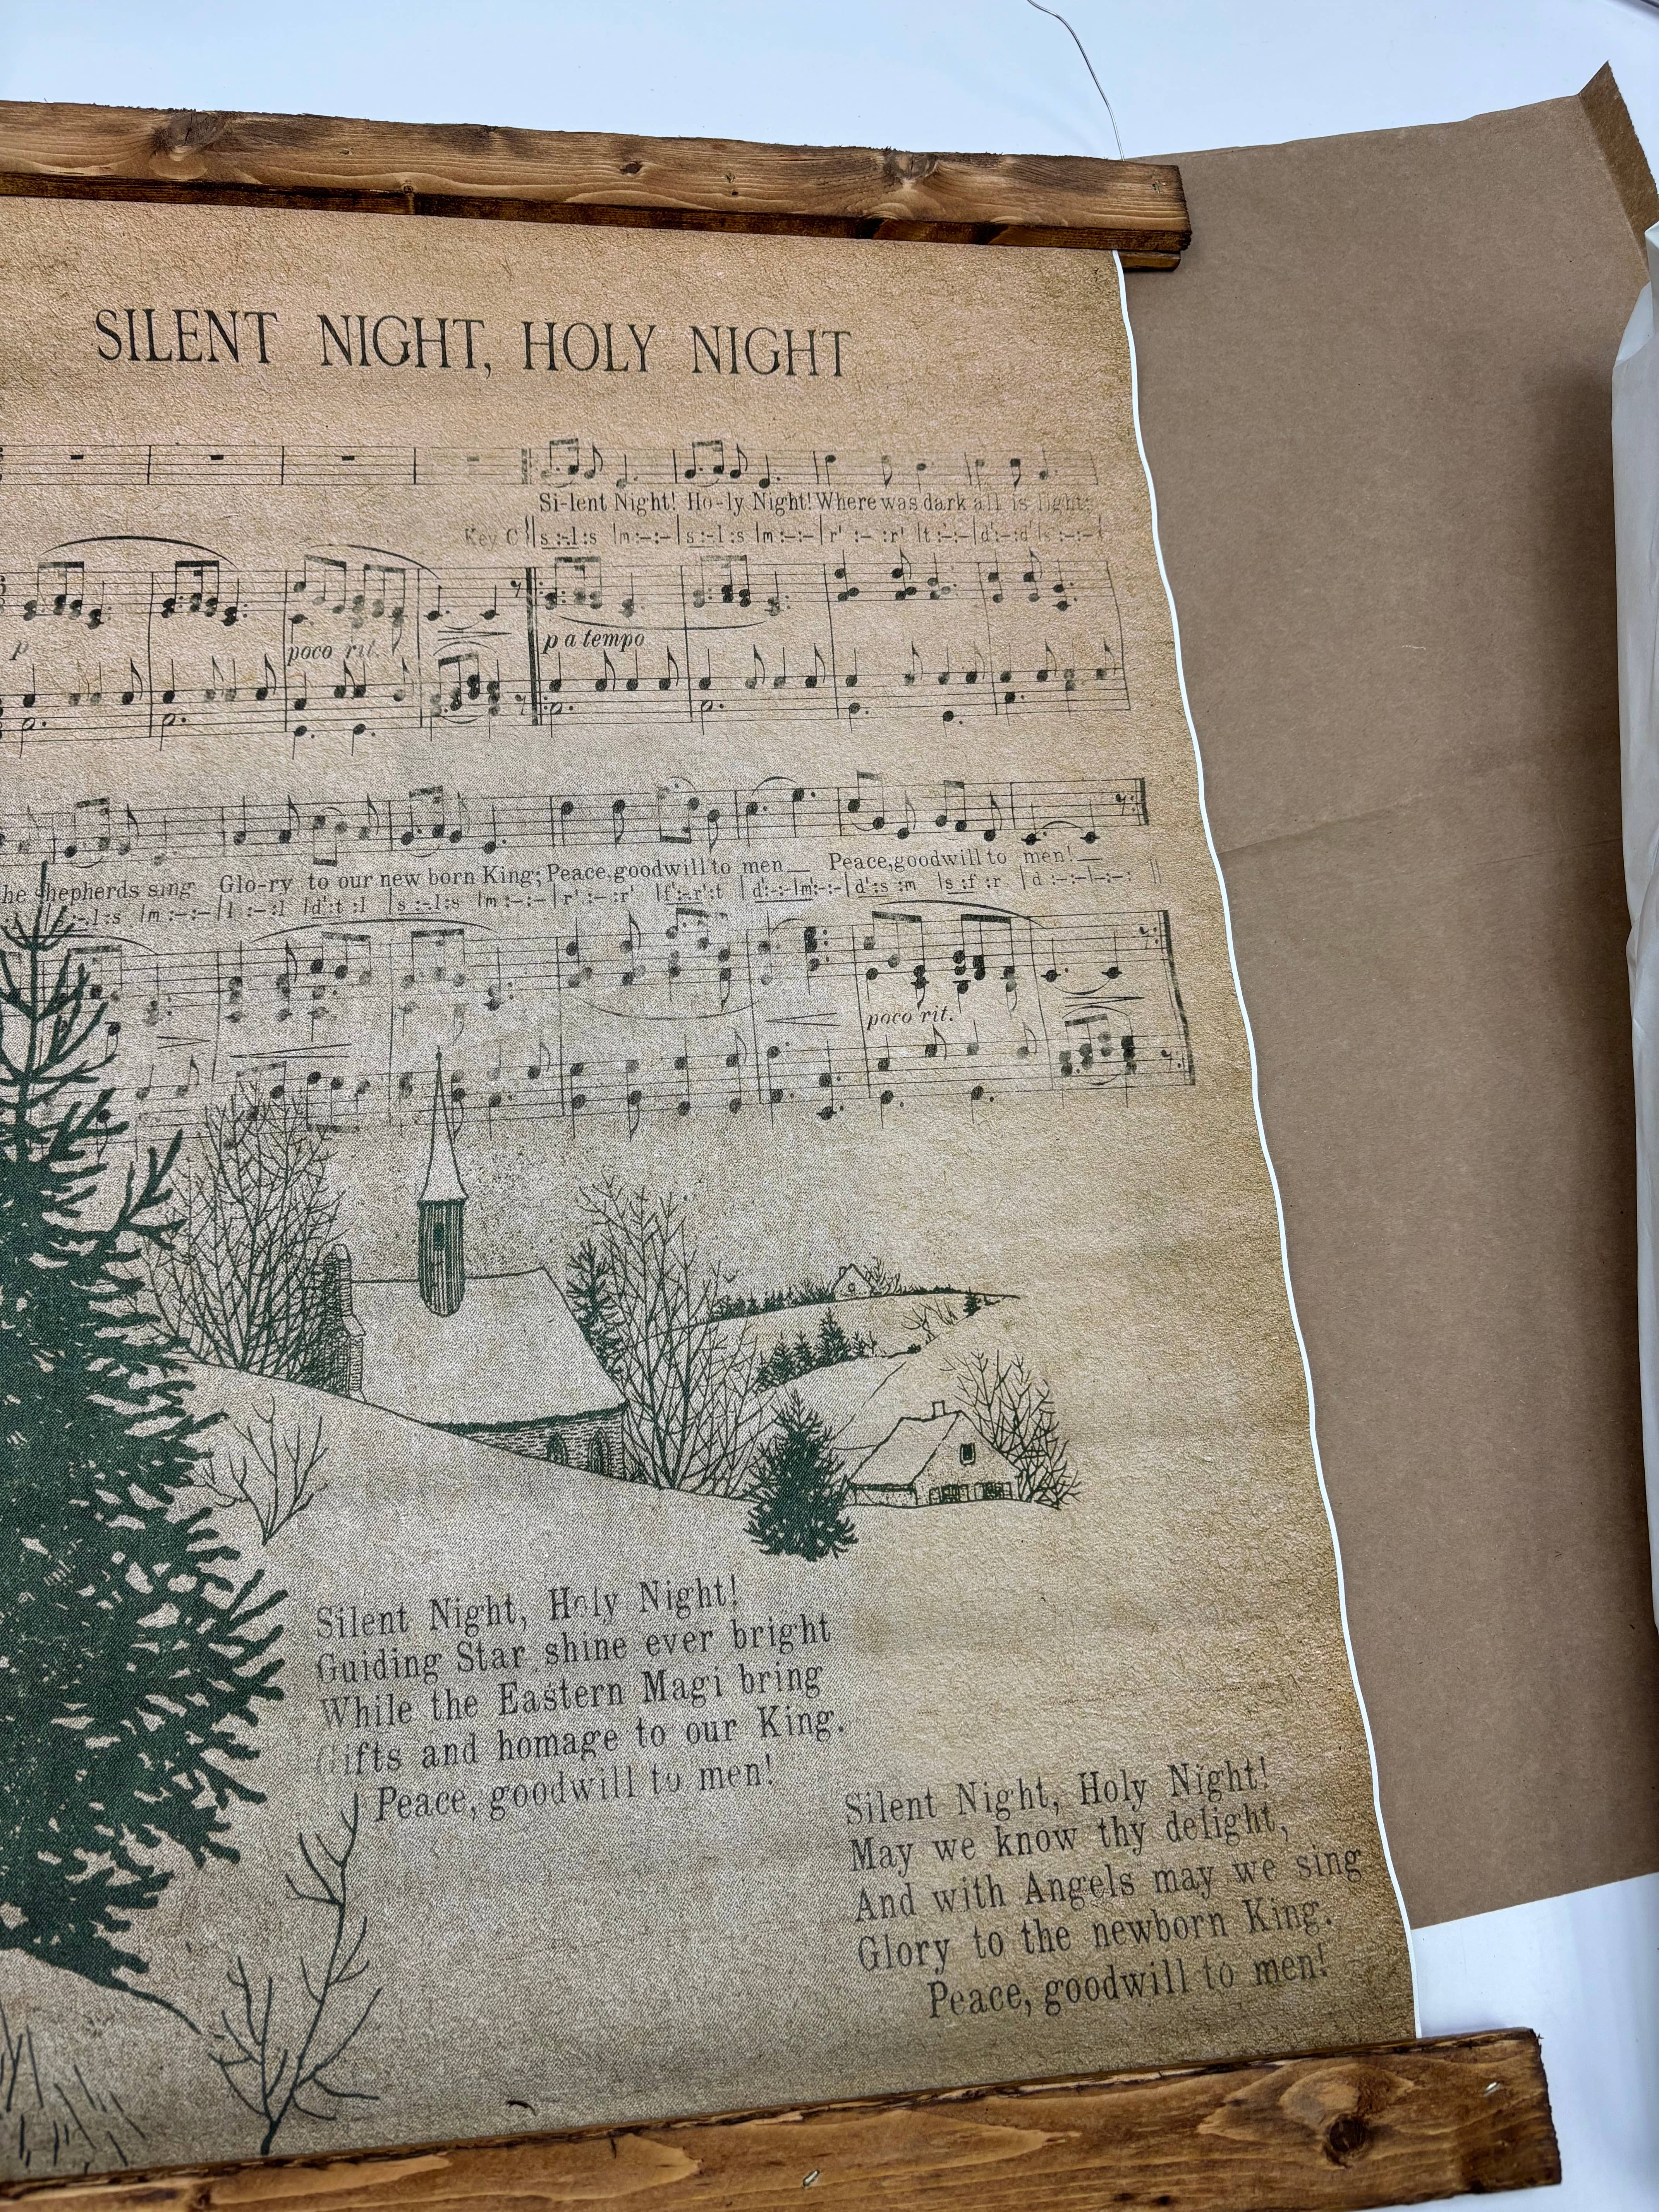 SILENT NIGHT, HOLY NIGHT
Si-lent Night! Ho-ly Night! Where was dark all is light;
Key C s :-.l :s |m :-:- |s :-.l :s |m :-:- |r' :- :r' |t :-:- |d' :- :d' |s :-:-
p
poco rit.
p a tempo
he shepherds sing Glo-ry to our new born King; Peace, goodwill to men__ Peace, goodwill to men!__
:-.l :s |m :-:- |l :-:l |d' :t :l |s :-.l :s |m :-:- |r' :- :r' |f' :-.r' :t |d' :-:- |m' :-:- |d' :s :m |s :f :r |d :-:- |-:-:
poco rit.
Silent Night, Holy Night!
Guiding Star shine ever bright
While the Eastern Magi bring
Gifts and homage to our King.
Peace, goodwill to men!
Silent Night, Holy Night!
May we know thy delight,
And with Angels may we sing
Glory to the newborn King.
Peace, goodwill to men!